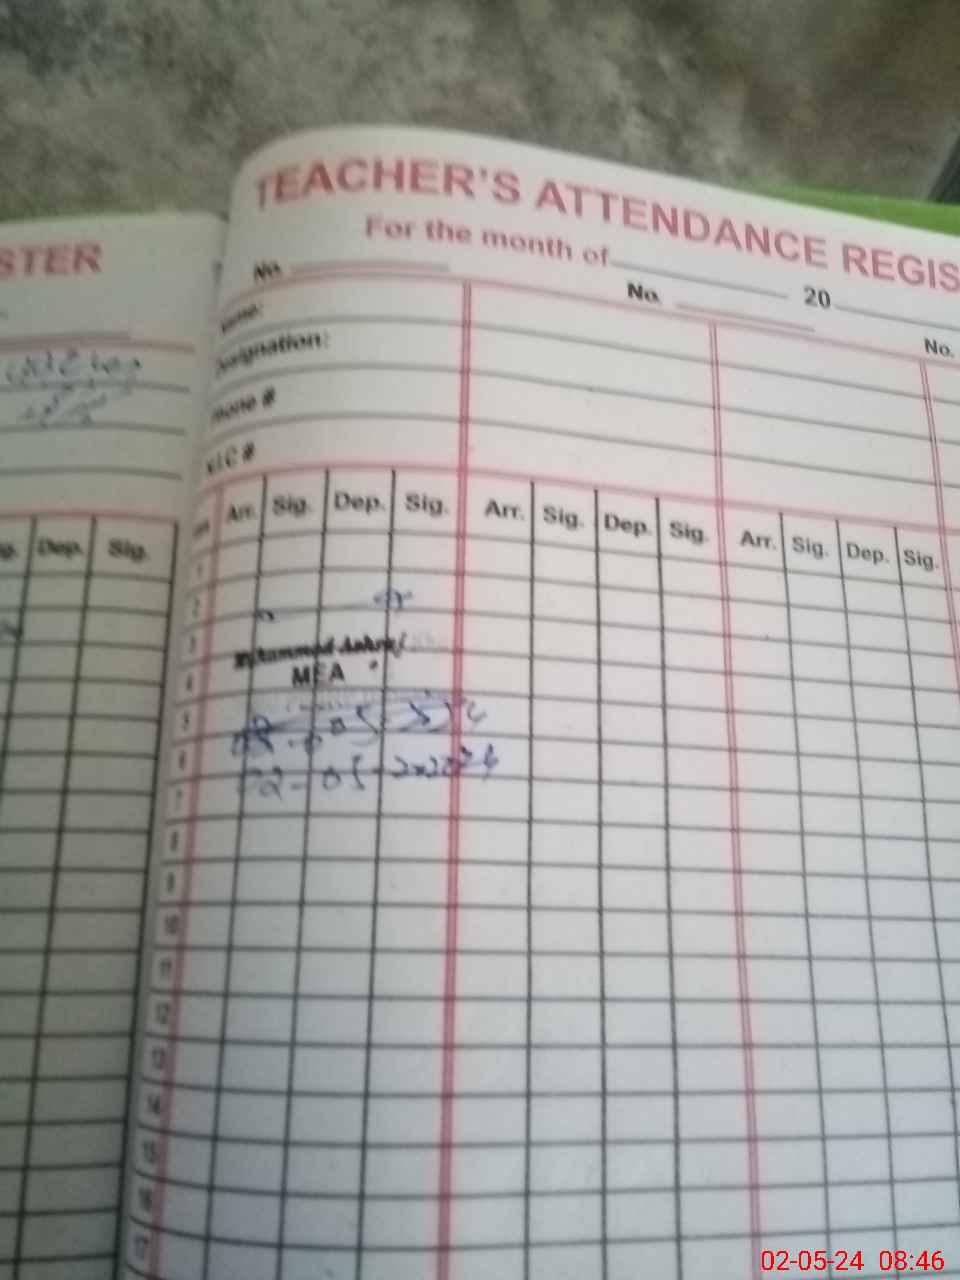 STER
TEACHER'S ATTENDANCE REGIS
For the month of 20
No. No. No.
Name:
Designation:
Phone #
N.I.C #
Dep. Sig.
Arr. Sig. Dep. Sig. Arr. Sig. Dep. Sig. Arr. Sig. Dep. Sig.
1
2
3
Muhammad Ashraf
4
MEA
5
6
02-05-2024
7
8
9
10
11
12
13
14
15
16
17
02-05-24 08:46